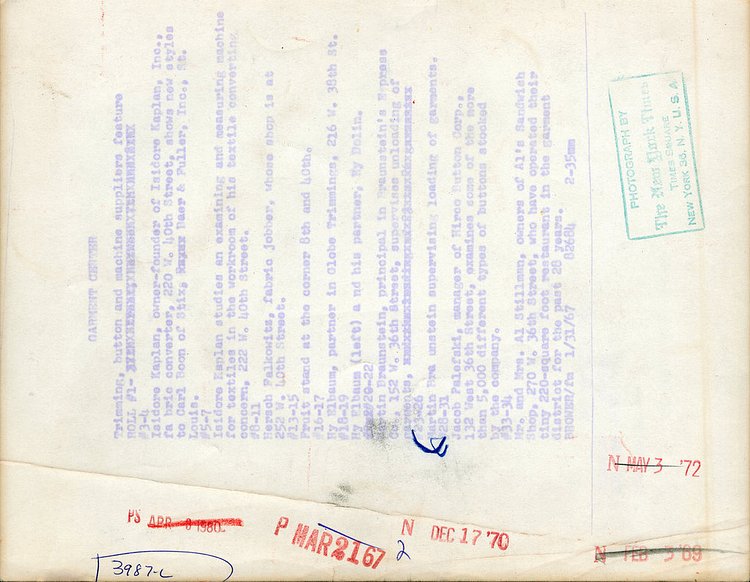 GARMENT CENTER
Trimming, button and machine suppliers feature
ROLL #1-
#3-4
Isidore Kaplan, owner-founder of Isidore Kaplan, Inc.,
fa bric converter, 220 W. 40th Street, shows new styles
to Carl Boon of Stix, Baer & Fuller, Inc., St.
Louis.
#5-7
Isidore Kaplan studies an examining and measuring machine
for textiles in the workroom of his textile converting
concern, 222 W. 40th Street.
#8-11
Hersch Falkowitz, fabric jobber, whose shop is at
252 W. 40th Street.
#13-15
Fruit stand at the corner 8th and 40th.
#16-17
Hy Elbaum, partner in Globe Trimmings, 216 W. 38th St.
#18-19
Hy Elbaum (left) a nd his partner, Hy Dolin.
#20-22
Martin Braunstein, principal in Braunstein's Express
Co., 152 W. 36th Street, supervises unloading of
garments,
#23-26
Martin Bra unstein supervising loading of garments.
#28-31
Jacob Palefski, manager of Hiroo Button Corp.,
132 West 36th Street, examines some of the more
than 5,000 different types of buttons stocked
by the company.
#33-34
Mr. and Mrs. Al Stillman, owners of Al's Sandwich
Shop, 270 W. 36th Street, who have operated their
tiny, 220-square foot restaurant in the garment
district for the past 28 years.
BROWER/fm 1/31/67 82684 2-35mm
PHOTOGRAPH BY
The New York Times
TIMES SQUARE
NEW YORK 36, N. Y. U. S. A
N MAY 3 '72
PS APR 8 1980
P MAR 21 67
2
N DEC 17 '70
N FEB 5 '69
3987-L